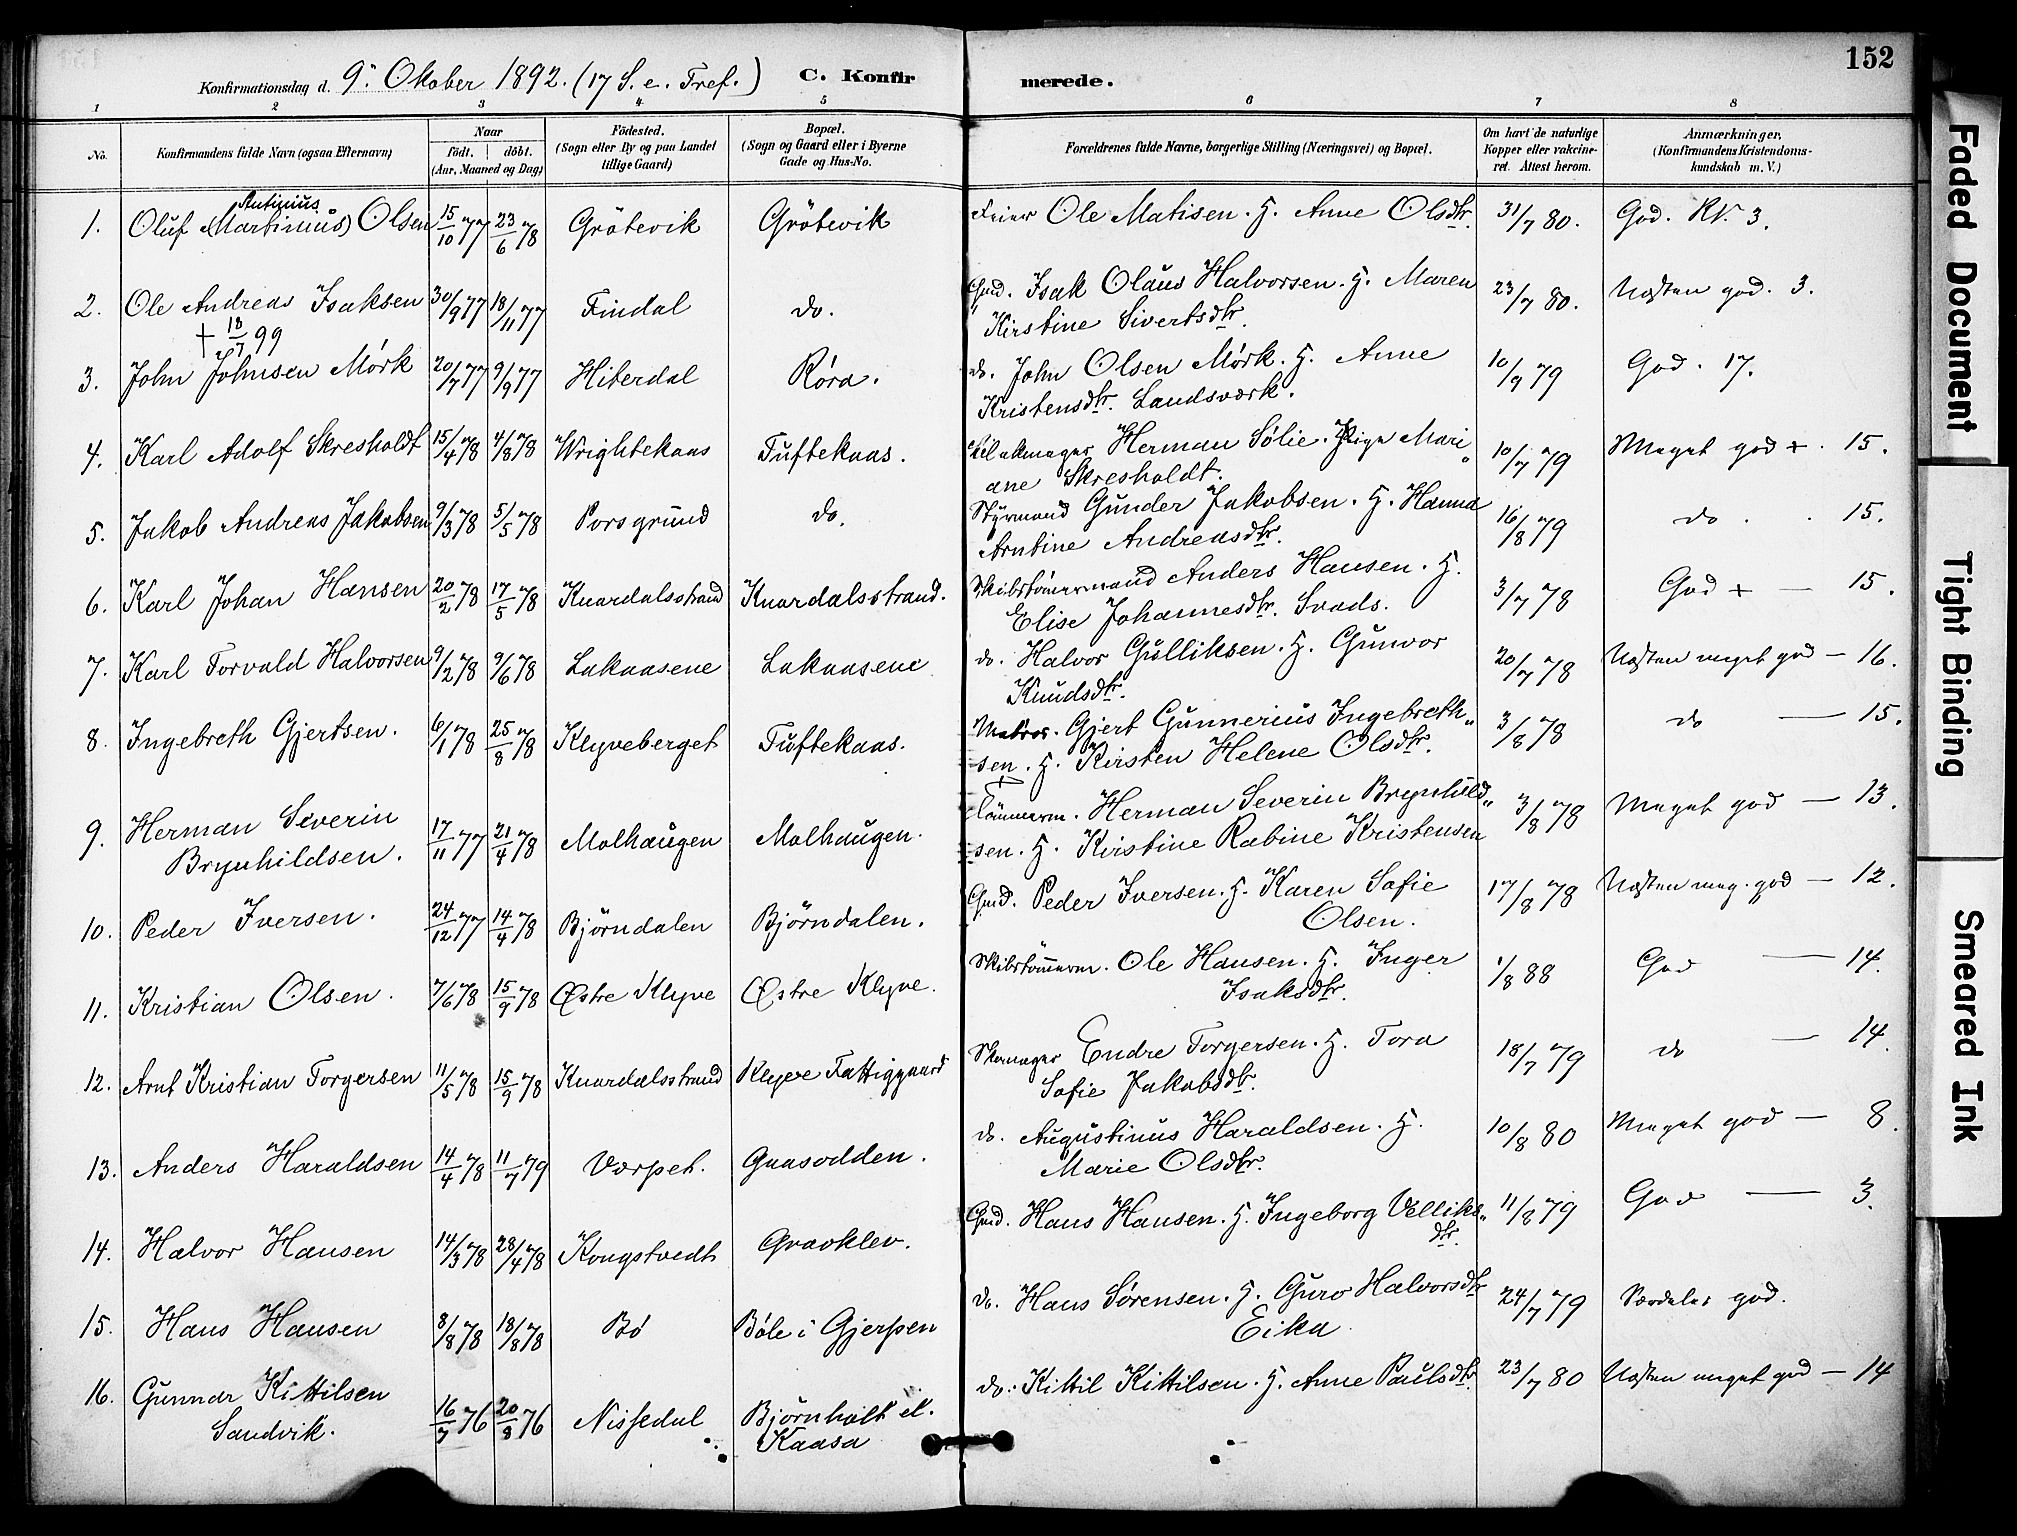 152
Konfirmationsdag d. 9. Okober 1892. (17 S. e. Tref.) C. Konfirmerede.
1 2 3 4 5 6 7 8
No. Konfirmandens fulde Navn (ogsaa Efternavn) Naar födt. döbt. (Aar, Maaned og Dag) Födested. (Sogn eller By og paa Landet tillige Gaard) Bopæl. (Sogn og Gaard eller i Byerne Gade og Hus-No. Forældrenes fulde Navne, borgerlige Stilling (Næringsvei) og Bopæl. Om havt de naturlige Kopper eller vakcineret. Attest herom. Anmærkninger, (Konfirmandens Kristendomskundskab m. V.)
Antinius
1. Oluf (Martinius) Olsen 15/10 77 23/6 78 Grötevik Grötevik Feier Ole Matisen. H. Anne Olsdtr. 31/7 80. God. Kv. 3.
2. Ole Andreas Isaksen 30/9 77 18/11 77 Findal do. Gmd. Isak Olaus Halvorsen. H. Maren 23/7 80. Næsten god. 3.
+ 18/7 99 Kirstine Sivertsdtr.
3. John Johnsen Mörk 20/7 77 9/9 77 Hiterdal Røra. do. John Olsen Mørk. H. Anne 10/9 79 God. 17.
Kristensdtr. Landsværk.
4. Karl Adolf Skresholdt 15/4 78 4/8 78 Wrightekaas Tuftekaas. Herman Sølie. Pige Mari 10/7 79 Meget god + . 15.
ane Skresholdt.
5. Jakob Andreas Jakobsen 9/3 78 5/5 78 Porsgrund do. Styrmand Gunder Jakobsen. H. Hanna 16/8 79 do . . 15.
Arntine Andreasdtr.
6. Karl Johan Hansen 20/2 78 17/5 78 Knardalsstrand Knardalsstrand. Skibstömermand Anders Hansen. H. 3/7 78 God + — 15.
Elise Johannesdtr. Svads.
7. Karl Torvald Halvorsen 9/2 78 9/6 78 Lakaasene Lakaasene do. Halvor Gulliksen. H. Gunvor 20/7 78 Næsten meget god — 16.
Knudsdtr.
8. Ingebreth Gjertsen. 6/1 78 25/8 78 Klyveberget Tuftekaas. Matros. Gjert Gunnerius Ingebreth„ 3/8 78 do — 15.
sen. H. Kirsten Helene Olsdtr.
9. Herman Severin 17/11 77 21/4 78 Molhaugen Molhaugen. Tömmerm. Herman Severin Brynhild„ 3/8 78 Meget god — 13.
Brynhildsen. sen. H. Kirstine Rabine Kristensen
10. Peder Iversen. 24/12 77 14/4 78 Björndalen Björndalen. Gmd. Peder Iversen. H. Karen Sofie 17/8 78 Næsten meg. god — 12.
Olsen.
11. Kristian Olsen. 7/6 78 15/9 78 Østre Klyve Østre Klyve. Skibstömmerm. Ole Hansen. H. Inger 1/8 88 God — 14.
Isaksdtr.
12. Arnt Kristian Torgersen 11/5 78 15/9 78 Knardalsstrand Klyve Fattiggaard Skomager Endre Torgersen. H. Tora 18/7 79 do — 14.
Sofie Jakobsdtr.
13. Anders Haraldsen 14/4 78 11/7 79 Værpet. Gaasodden. do. Augustinus Haraldsen. H. 10/8 80 Meget god — 8.
Marie Olsdtr.
14. Halvor Hansen 14/3 78 28/4 78 Kongstvedt Gravklev. Gmd. Hans Hansen. H. Ingeborg Velliks„ 11/8 79 God — 3.
dtr.
15. Hans Hansen 8/8 78 18/8 78 Bö Böle i Gjerpen do. Hans Sørensen. H. Guro Halvorsdtr 24/7 79 Særdeles god.
Eika
16. Gunnar Kittilsen 16/7 76 20/8 76 Nissedal Björnholt el. do. Kittil Kittilsen. H. Anne Paulsdtr. 23/7 80 Næsten meget god — 14
Sandvik. Kaasa
Faded Document
Tight Binding
Smeared Ink